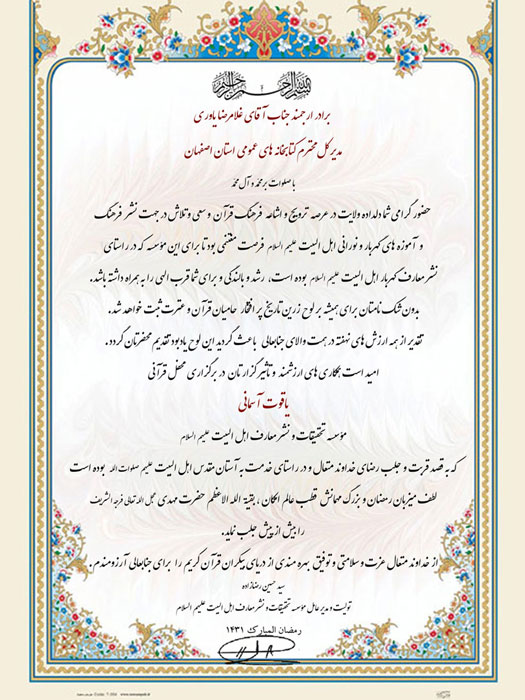 بسم الله الرحمن الرحیم
برادر ارجمند جناب آقای غلامرضا یاوری
مدیر کل محترم کتابخانه های عمومی استان اصفهان
با صلوات بر محمد و آل محمد
حضور گرامی شما دلداده ولایت در عرصه ترویج و اشاعه فرهنگ قرآن و سعی و تلاش در جهت نشر فرهنگ
و آموزه های گهربار و نورانی اهل البیت علیهم السلام فرصت مغتنمی بود تا برای این مؤسسه که در راستای
نشر معارف گهربار اهل البیت علیهم السلام بوده است، رشد و بالندگی و برای شما قرب الهی را به همراه داشته باشد.
بدون شک نامتان برای همیشه بر لوح زرین تاریخ پر افتخار حامیان قرآن و عترت ثبت خواهد شد.
تقدیر از همه ارزش های نهفته در همت والای جنابعالی باعث گردید این لوح یادبود تقدیم محضرتان گردد.
امید است همکاری های ارزشمند و تاثیرگذارتان در برگزاری محفل قرآنی
یاقوت آسمانی
مؤسسه تحقیقات و نشر معارف اهل البیت علیهم السلام
که به قصد قربت و جلب رضای خداوند متعال و در راستای خدمت به آستان مقدس اهل البیت علیهم صلوات الله بوده است
لطف میزبان رمضان و بزرگ مهمانش قطب عالم امکان، بقیة الله الاعظم حضرت مهدی عجل الله تعالی فرجه الشریف
را بیش از پیش جلب نماید.
از خداوند متعال عزت و سلامتی و توفیق بهره مندی از دریای بیکران قرآن کریم را برای جنابعالی آرزومندم.
سید حسین رضازاده
تولیت و مدیر عامل مؤسسه تحقیقات و نشر معارف اهل البیت علیهم السلام
رمضان المبارک ۱۴۳۱